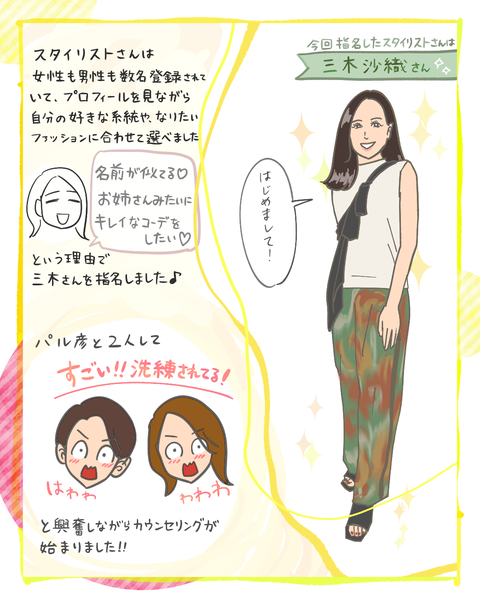 スタイリストさんは
女性も男性も数名登録されて
いて、プロフィールを見ながら
自分の好きな系統や、なりたい
ファッションに合わせて選べました
名前が似てる♡
お姉さんみたいに
キレイなコーデを
したい♡
という理由で
三木さんを指名しました♪
今回指名したスタイリストさんは
三木沙織さん
はじめまして!
パル彦と2人して
すごい!!洗練されてる!
はわわ
わわわ
と興奮しながらカウンセリングが
始まりました!!